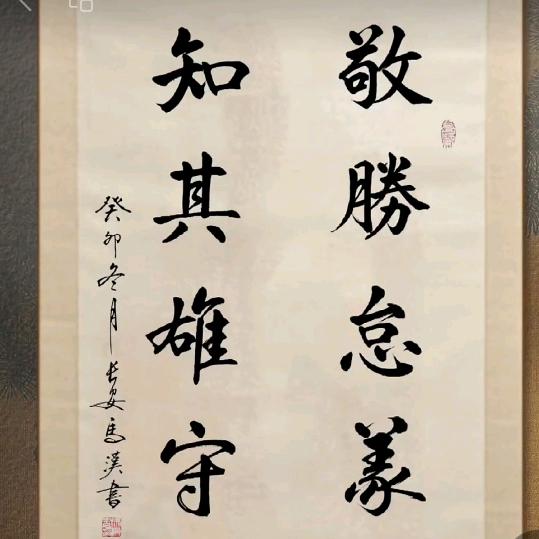 敬勝怠義
知其雄守
癸卯冬月長安馬漢書